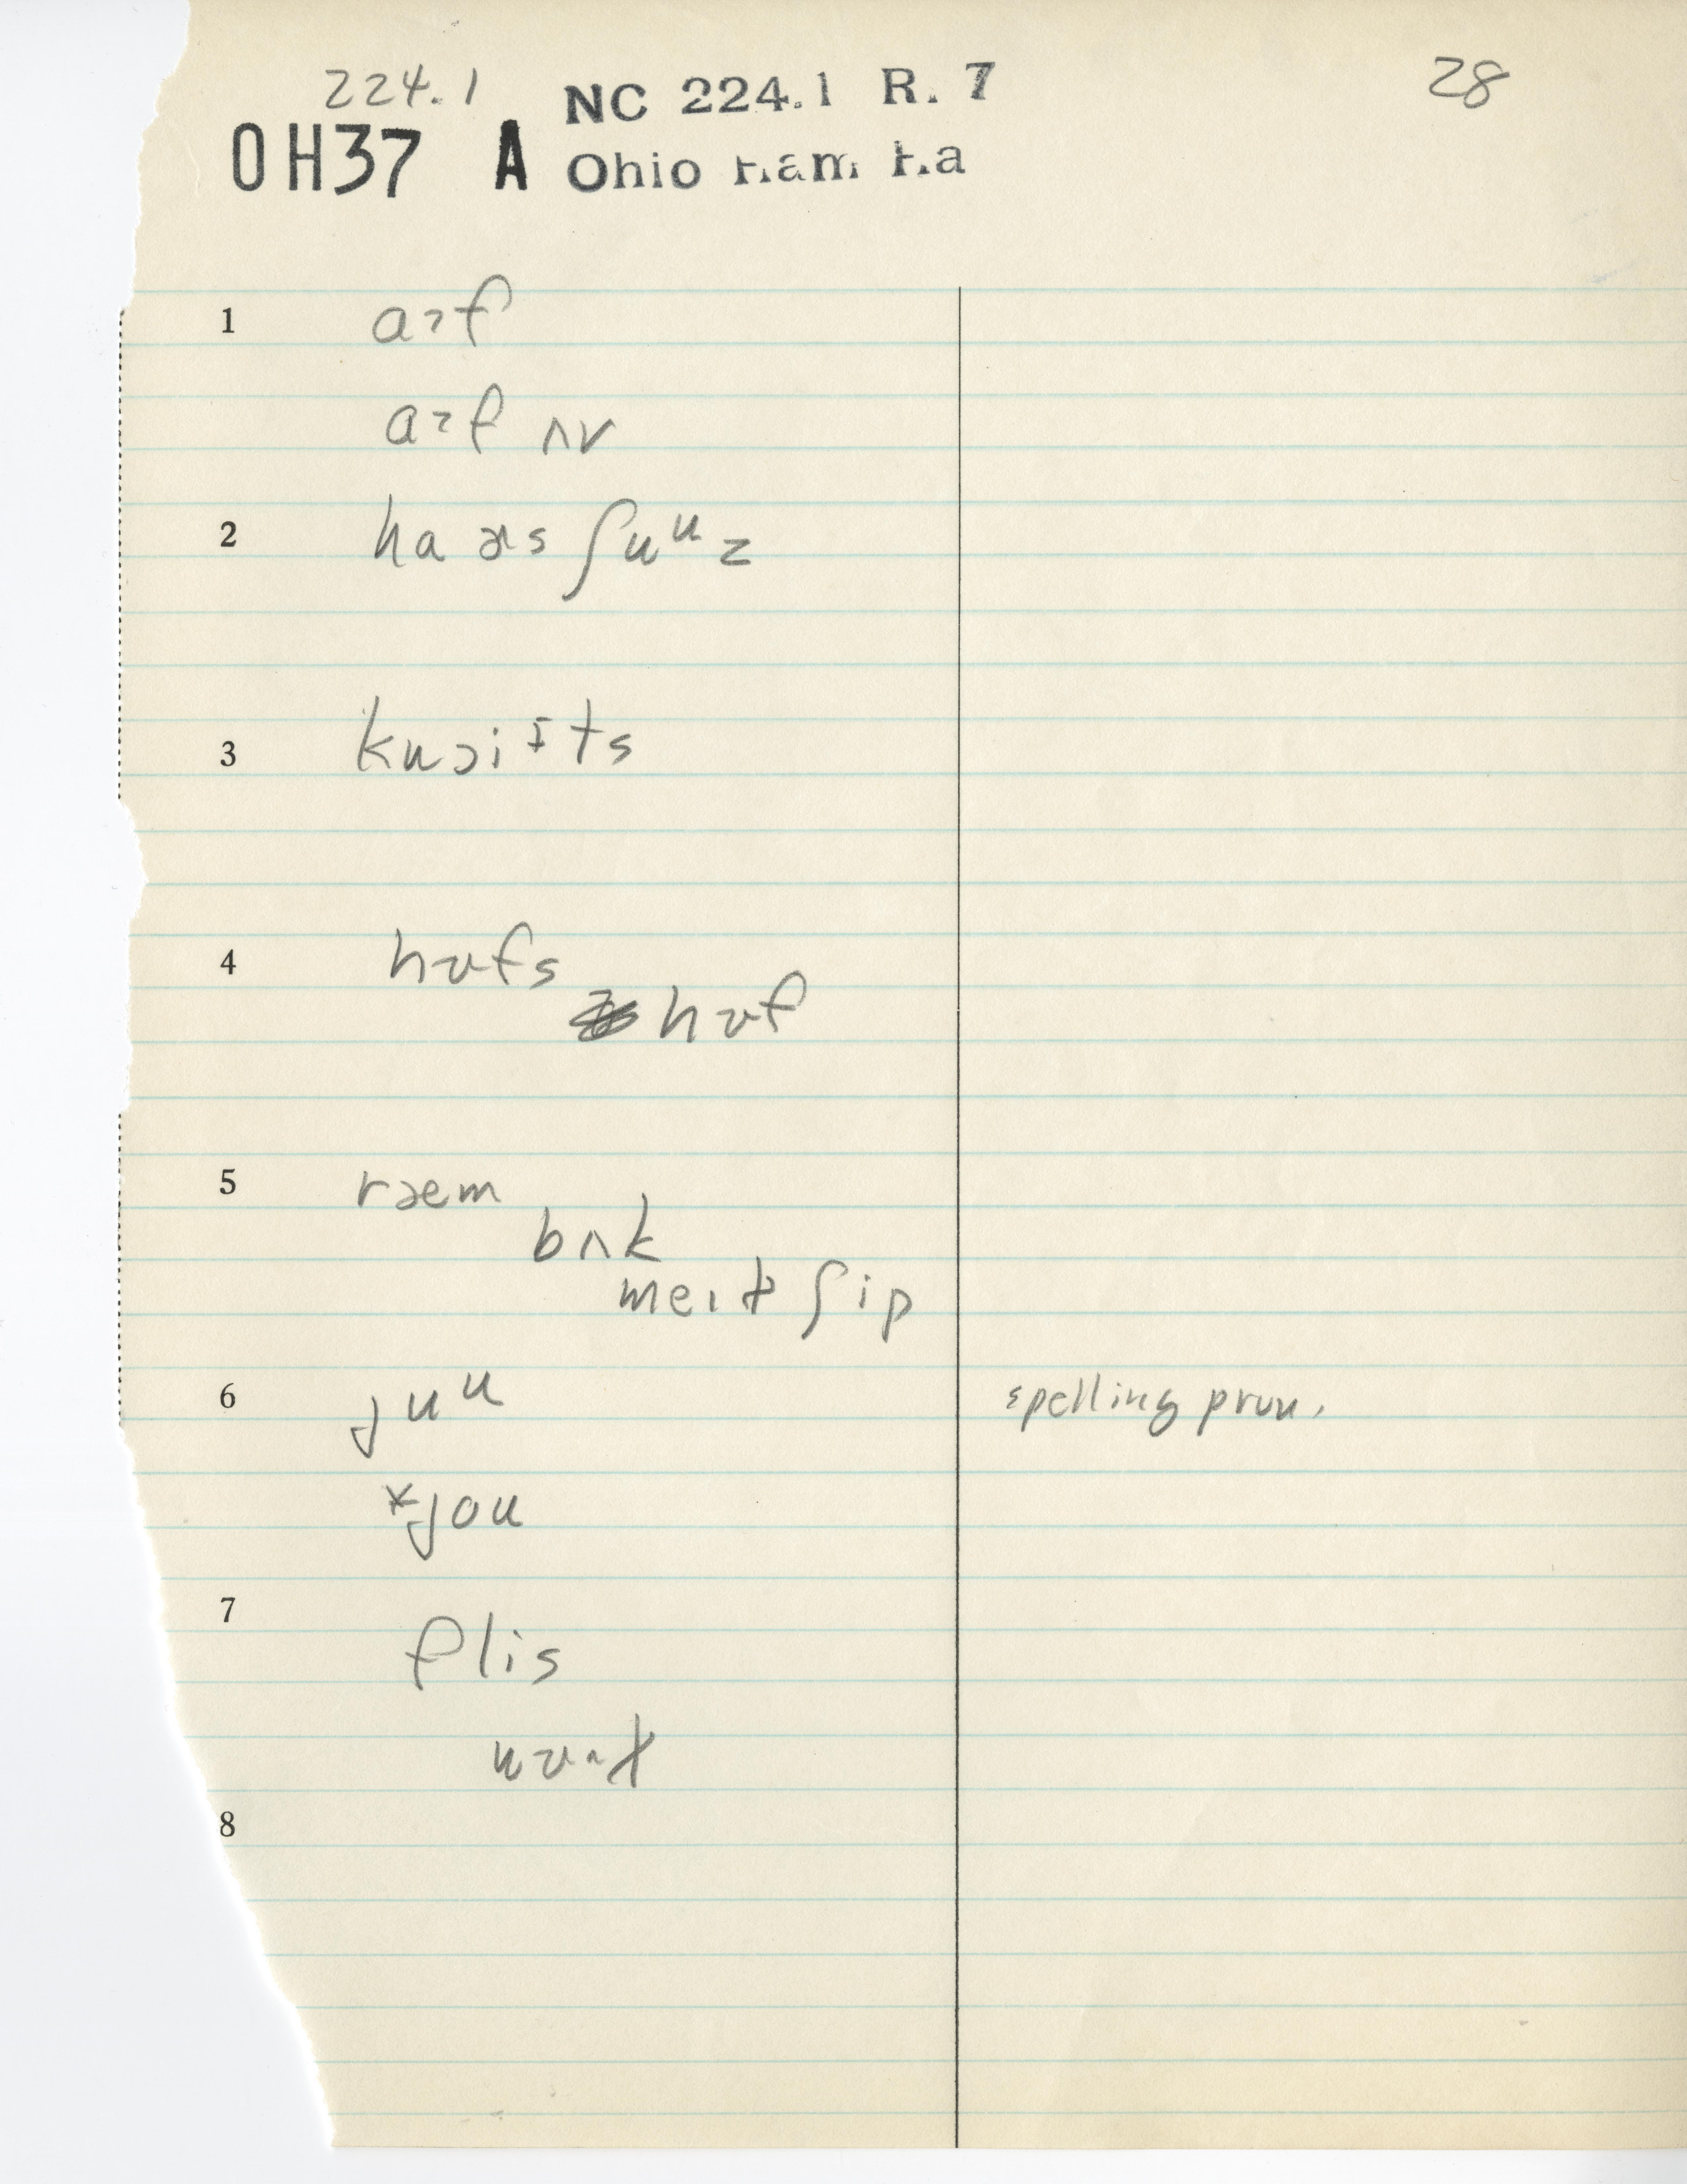 224.1
28
NC 224.1 R. 7
OH37 A
Ohio Ham Ha
1 aɔf
aɔf ʌv
2
3
4 hʊfs
hʊf
5 ræm
bʌk
ʃip
6 juᵘ spelling pron.
*jou
7 flis
8